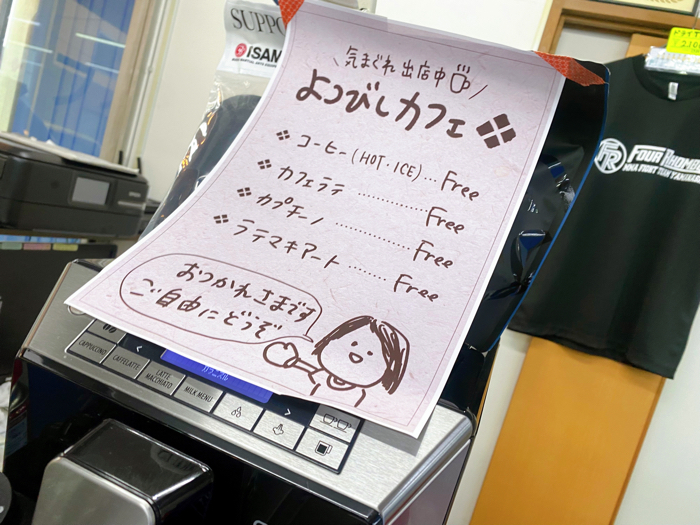 気まぐれ出店中
よつびしカフェ
コーヒー(HOT・ICE)…Free
カフェラテ……………Free
カプチーノ……………Free
ラテマキアート………Free
おつかれさまです
ご自由にどうぞ
SUPPO
iSAM
CAPPUCCINO
CAFFELATTE
LATTE MACCHIATO
MILK MENU
FR
FOUR RHOMBU
MMA FIGHT TEAM